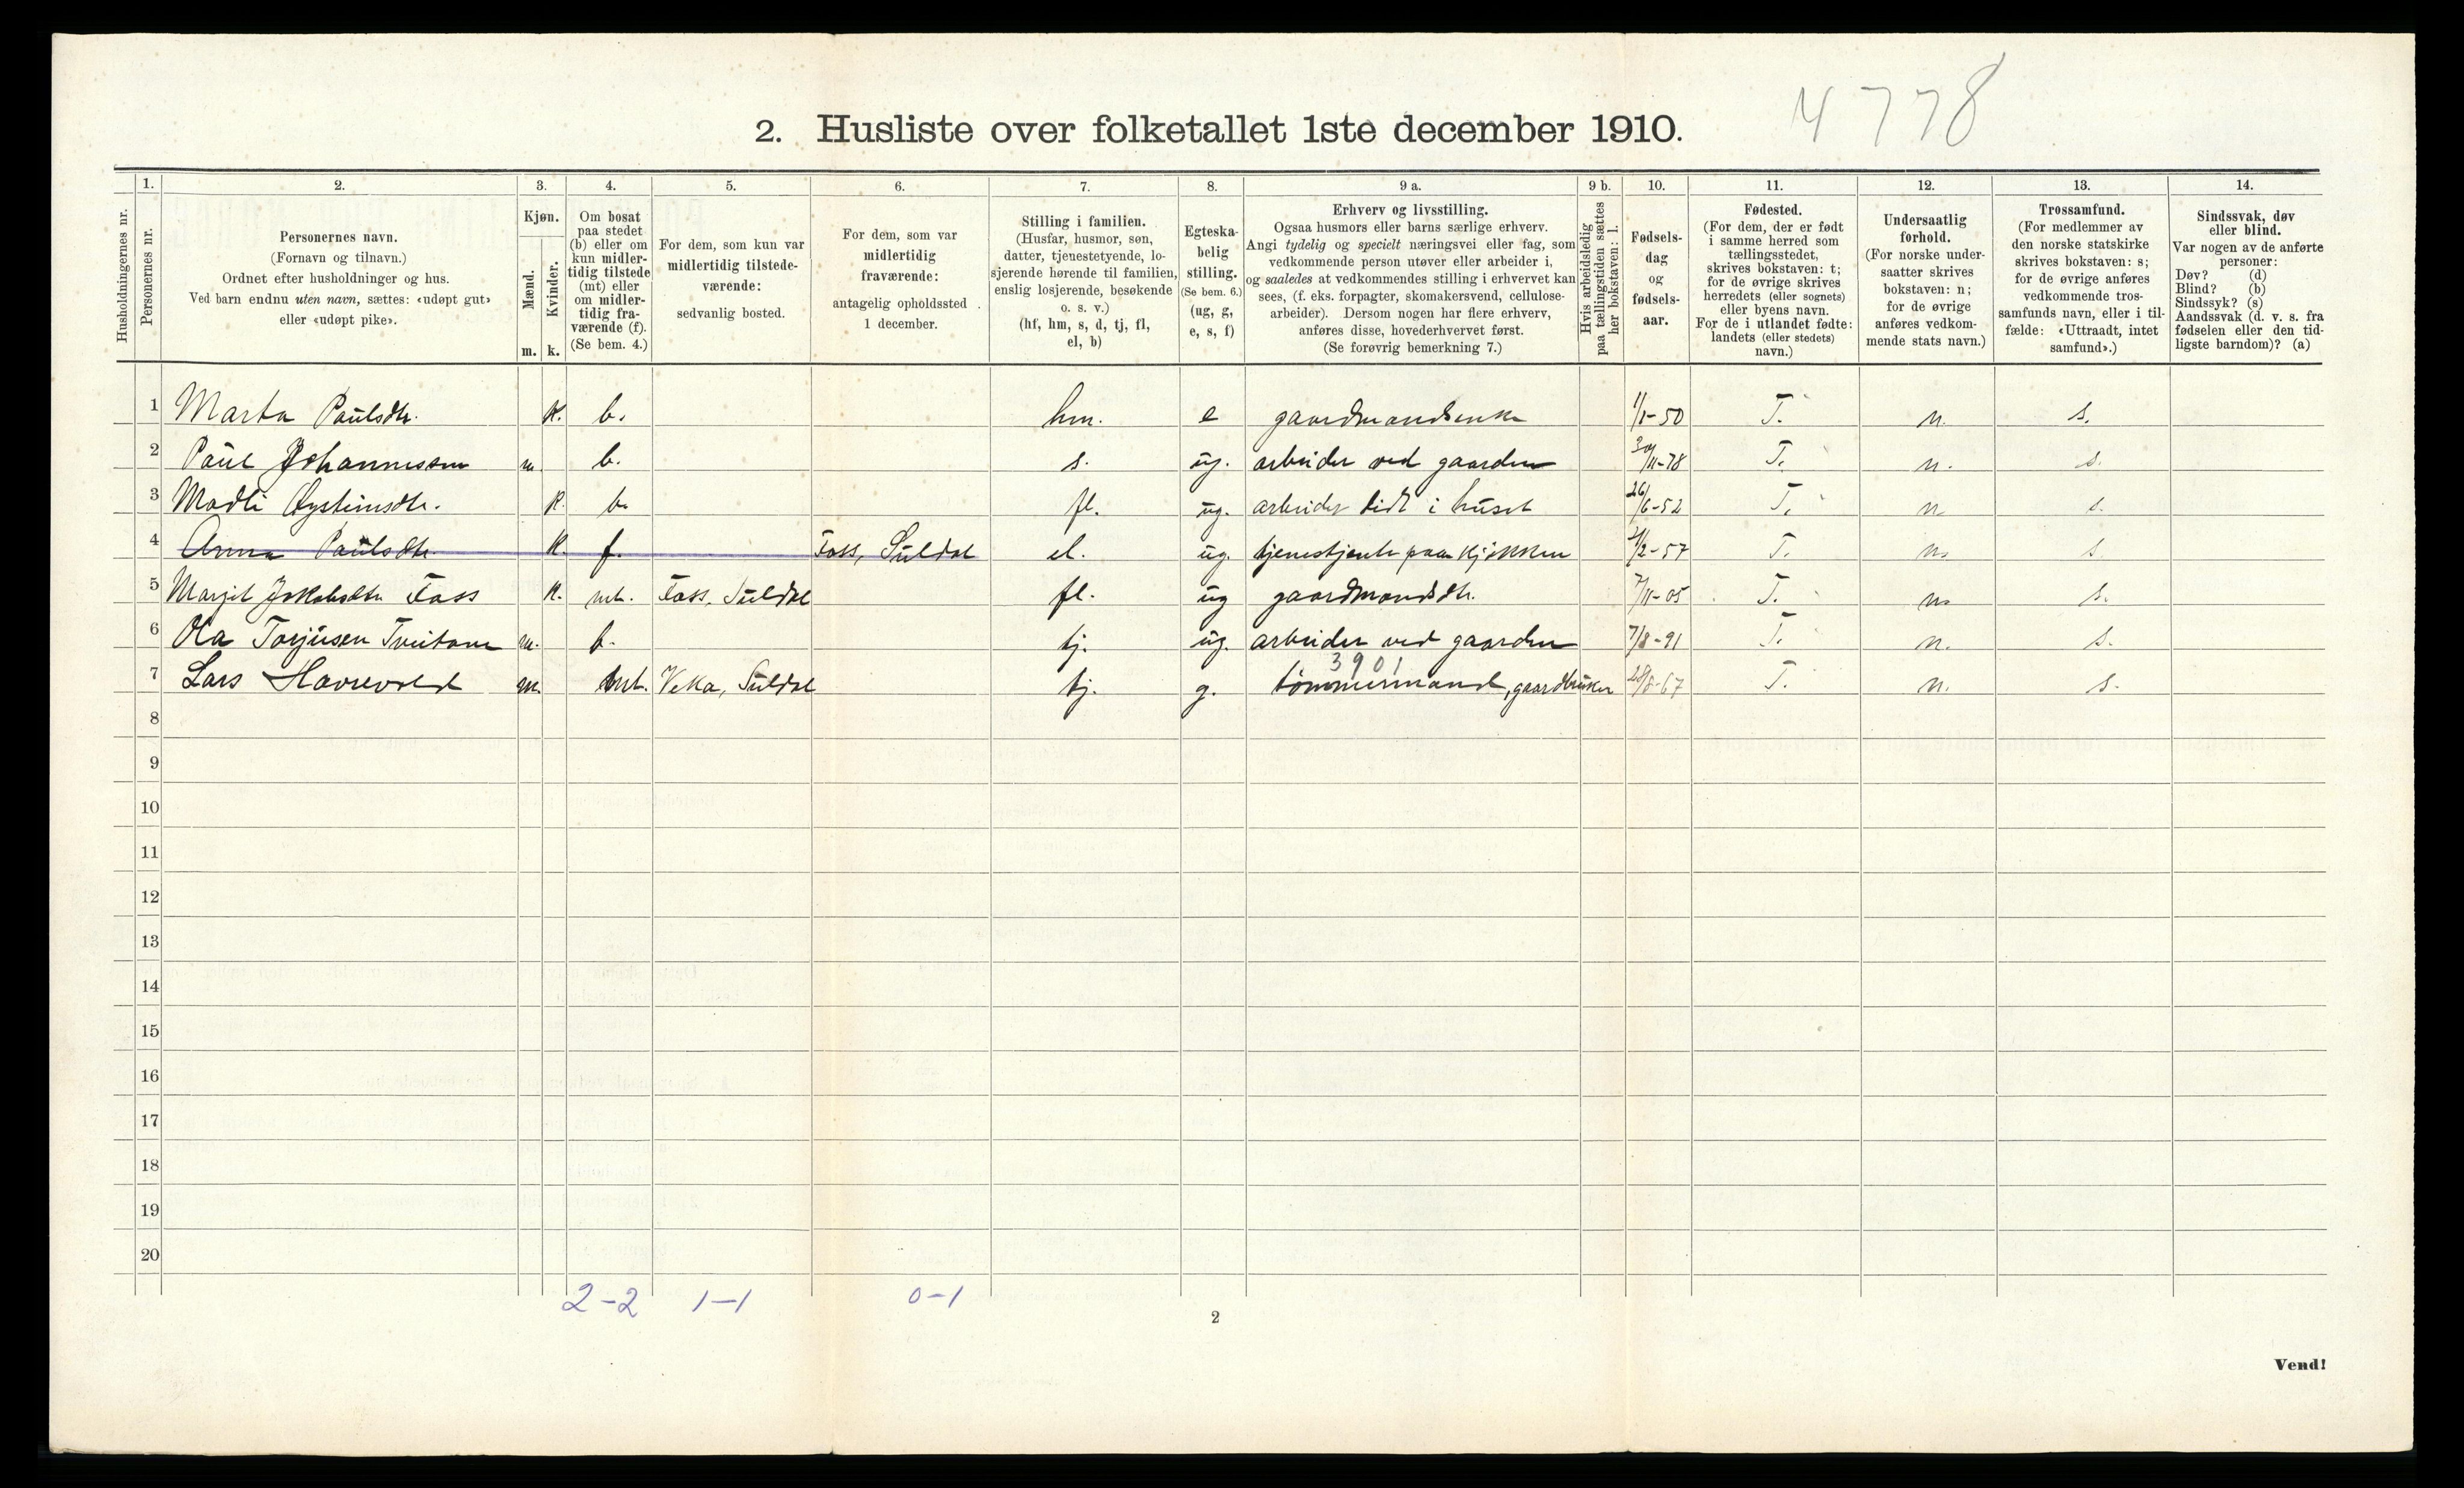 4778
2. Husliste over folketallet 1ste december 1910.
Husholdningernes nr.
1.
Personernes nr.
2.
Personernes navn.
(Fornavn og tilnavn.)
Ordnet efter husholdninger og hus.
Ved barn endnu uten navn, sættes: «udøpt gut»
eller «udøpt pike».
3.
Kjøn.
Mænd.
Kvinder.
m. k.
4.
Om bosat
paa stedet
(b) eller om
kun midler-
tidig tilstede
(mt) eller
om midler-
tidig fra-
værende (f).
(Se bem. 4.)
5.
For dem, som kun var
midlertidig tilstede-
værende:
sedvanlig bosted.
6.
For dem, som var
midlertidig
fraværende:
antagelig opholdssted
1 december.
7.
Stilling i familien.
(Husfar, husmor, søn,
datter, tjenestetyende, lo-
sjerende hørende til familien,
enslig losjerende, besøkende
o. s. v.)
(hf, hm, s, d, tj, fl,
el, b)
8.
Egteska-
belig
stilling.
(Se bem. 6.)
(ug, g,
e, s, f)
9 a.
Erhverv og livsstilling.
Ogsaa husmors eller barns særlige erhverv.
Angi tydelig og specielt næringsvei eller fag, som
vedkommende person utøver eller arbeider i,
og saaledes at vedkommendes stilling i erhvervet kan
sees, (f. eks. forpagter, skomakersvend, cellulose-
arbeider). Dersom nogen har flere erhverv,
anføres disse, hovederhvervet først.
(Se forøvrig bemerkning 7.)
9 b.
Hvis arbeidsledig
paa tællingstiden sættes
her bokstaven: l.
10.
Fødsels-
dag
og
fødsels-
aar.
11.
Fødested.
(For dem, der er født
i samme herred som
tællingsstedet,
skrives bokstaven: t;
for de øvrige skrives
herredets (eller sognets)
eller byens navn.
For de i utlandet fødte:
landets (eller stedets)
navn.)
12.
Undersaatlig
forhold.
(For norske under-
saatter skrives
bokstaven: n;
for de øvrige
anføres vedkom-
mende stats navn.)
13.
Trossamfund.
(For medlemmer av
den norske statskirke
skrives bokstaven: s;
for de øvrige anføres
vedkommende tros-
samfunds navn, eller i til-
fælde: «Uttraadt, intet
samfund».)
14.
Sindssvak, døv
eller blind.
Var nogen av de anførte
personer:
Døv? (d)
Blind? (b)
Sindssyk? (s)
Aandssvak (d. v. s. fra
fødselen eller den tid-
ligste barndom)? (a)
1 Marta Paulsdtr. k. b. hm. e gaardmandsenke 1/1-50 T. n. s.
2 Paul Johannessen m b. s. ug. arbeider ved gaarden 30/11-78 T. n. s.
3 Madli Øysteinsdtr. k. b. fl. ug. arbeider lidt i huset 26/6-52 T. n s.
4 Anna Paulsdtr. k. f. Foss, Suldal el. ug. tjenestjente paa kjøkken /2-57 T. n. s
5 Margit Jakobsdtr Foss k. mt. Foss, Suldal fl. ug gaardmandsdtr. 7/11-05 T. n. s.
6 Ola Torjusen Tveitane m. b. tj. ug. arbeider ved gaarden 7/8-91 T. n. s.
3901
7 Lars Havrevold m. mt. Veka, Suldal tj. g. tømmermand, gaardbruker 28/8-67 T. n. s.
8
9
10
11
12
13
14
15
16
17
18
19
20
2-2 1-1 0-1
2
Vend!